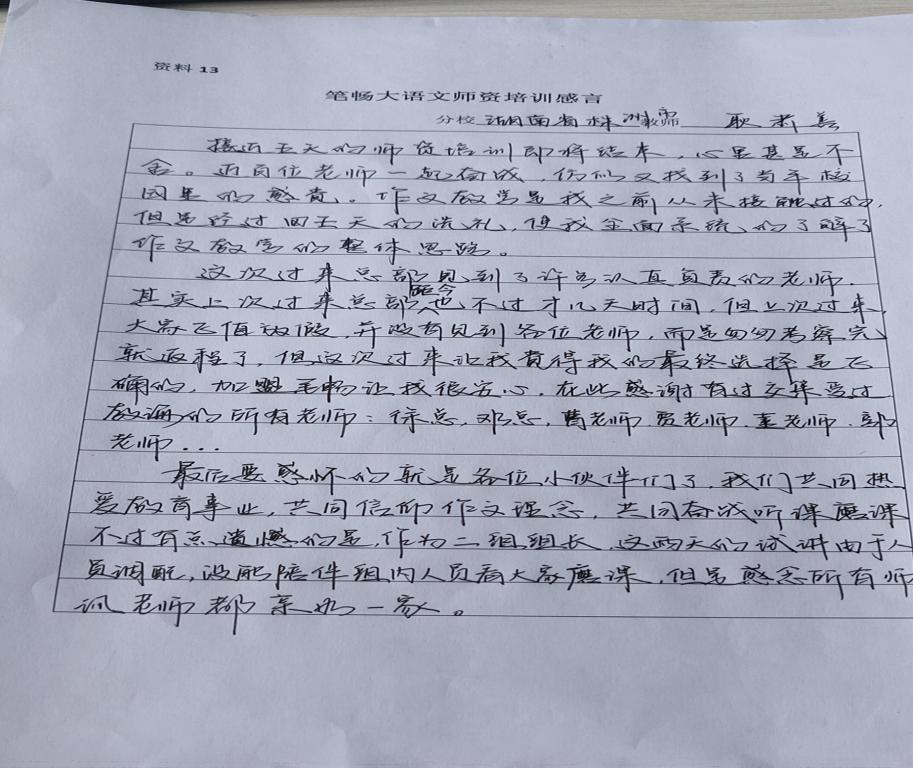 资料 13
笔畅大语文师资培训感言
分校 湖南省株洲市 教师 耿
接近五天的师资培训即将结束，心里甚是不
舍。跟各位老师一起奋战，仿佛又找到了当年校
园里的感觉。作文教学是我之前从未接触过的，
但是经过四五天的洗礼，使我全面系统的了解了
作文教学的整体思路。
这次过来总部见到了许多认真负责的老师，
其实上次过来总部距今也不过才几天时间，但上次过来
大家正值放假，并没有见到各位老师，而是匆匆考察完
就返程了，但这次过来让我觉得我的最终选择是正
确的，加盟笔畅让我很安心，在此感谢有过交集受过
教诲的所有老师：徐总，邓总，曹老师，贾老师，董老师，郭
老师...
最后要感怀的就是各位小伙伴们了，我们共同热
爱教育事业，共同信仰作文理念，共同奋战听课磨课
不过有点遗憾的是，作为二组组长，这两天的试讲由于人
员调配，没能陪伴组内人员看大家磨课，但是感念所有师
训老师都亲如一家。